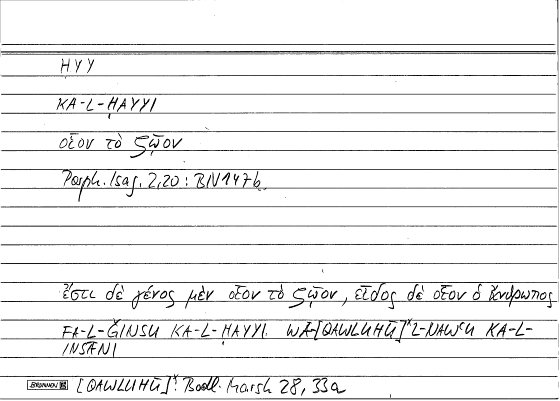 ḤYY
KA-L-ḤAYYI
οἷον τὸ ζῷον
Porph. Isag. 2,20 : BN 147b
ἔστι δὲ γένος μὲν οἷον τὸ ζῷον, εἶδος δὲ οἷον ὁ ἄνθρωπος
FA-L-ǦINSU KA-L-ḤAYYI. WA-[QAWLUHŪ]ˣ L-NAWʿU KA-L-
INSĀNI
BRUNNEN [QAWLUHŪ]ˣ: Bodl. Marsh 28, 33a